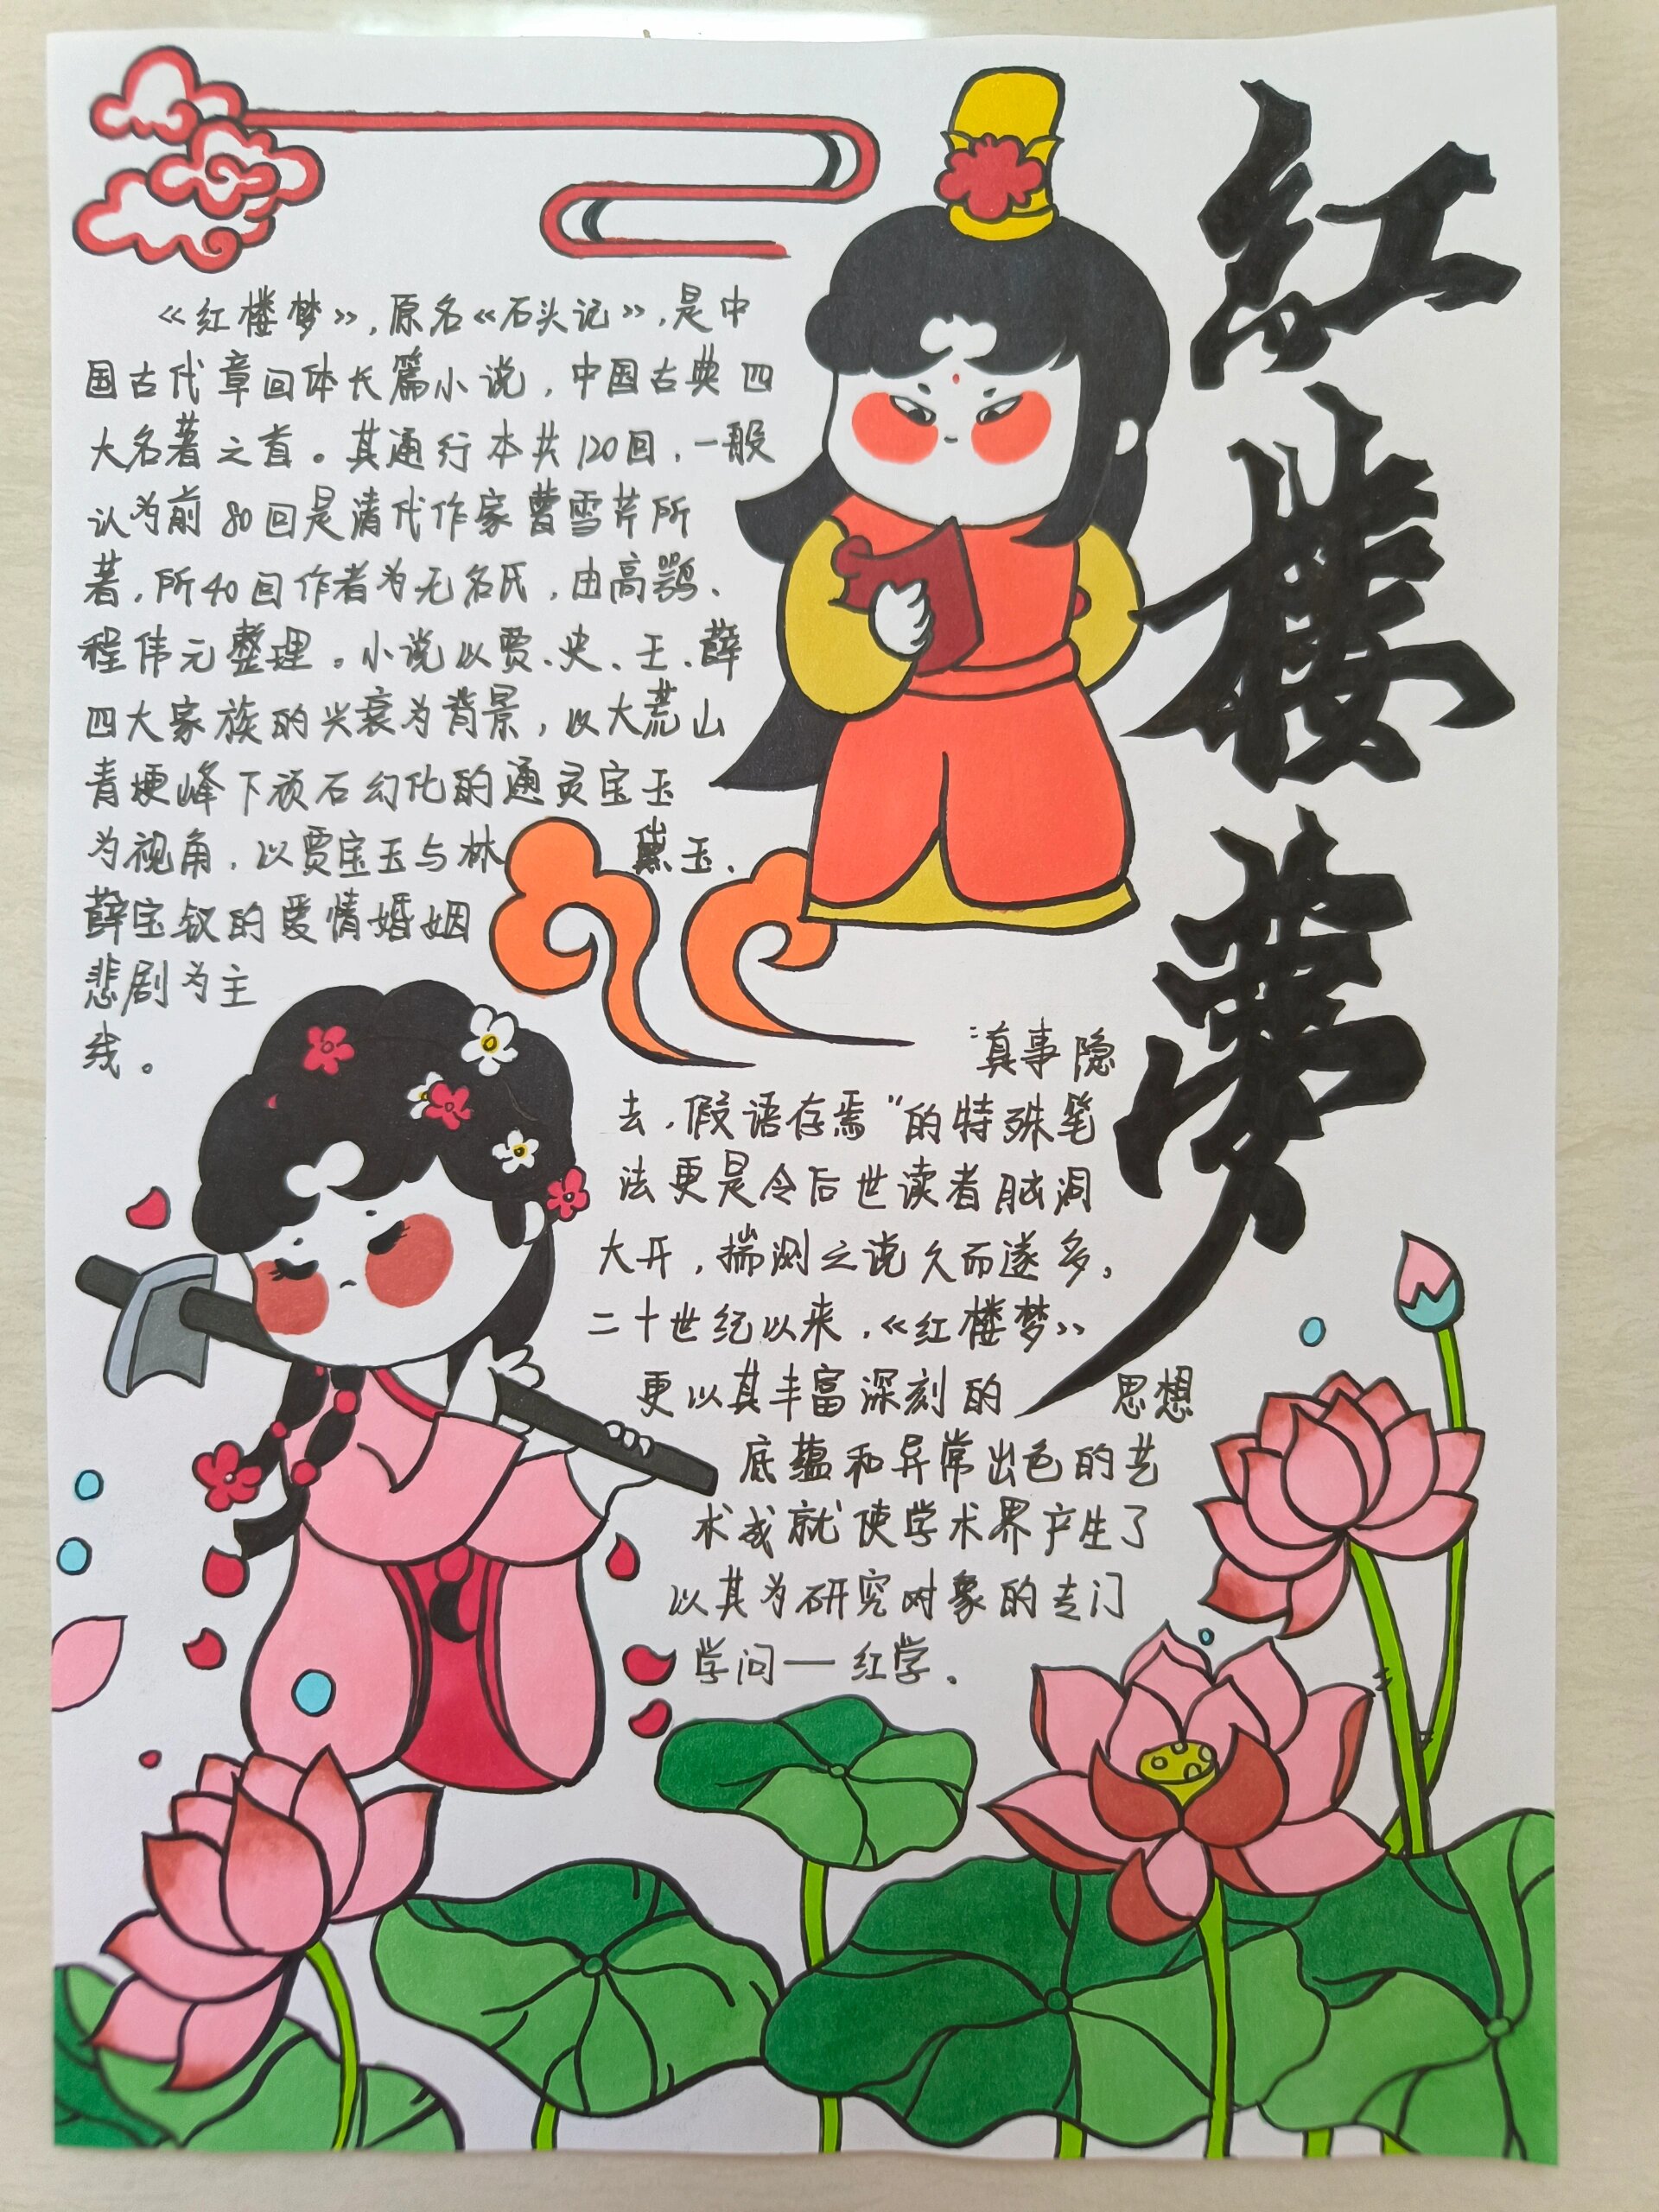 红楼梦
《红楼梦》,原名《石头记》,是中
国古代章回体长篇小说,中国古典四
大名著之首。其通行本共120回,一般
认为前80回是清代作家曹雪芹所
著,所40回作者为无名氏,由高鹗、
程伟元整理。小说以贾、史、王、薛
四大家族的兴衰为背景,以大荒山
青埂峰下顽石幻化的通灵宝玉
为视角,以贾宝玉与林黛玉、
薛宝钗的爱情婚姻
悲剧为主
线。
“真事隐
去,假语存焉”的特殊笔
法更是令后世读者脑洞
大开,揣测之说久而遂多。
二十世纪以来,《红楼梦》
更以其丰富深刻的思想
底蕴和异常出色的艺
术成就使学术界产生了
以其为研究对象的专门
学问——红学。